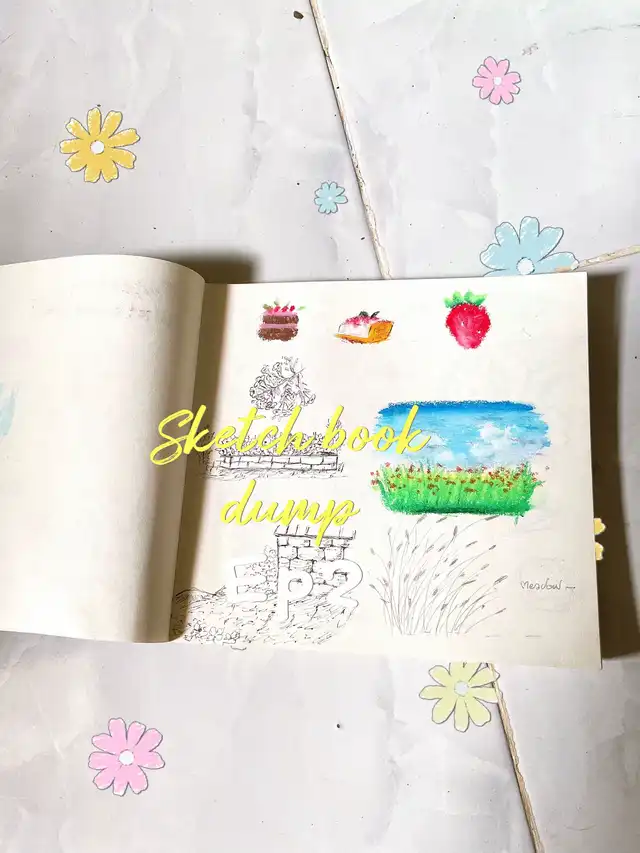 Sketch book
dump
Ep 2
meadow